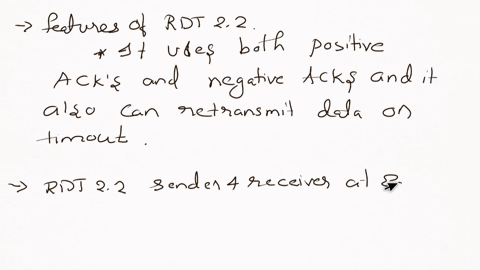 → features of RDT 2.2.
* It uses both positive
ACK's and negative ACKs and it
also can retransmit data on
timout.
→ RDT 2.2 sender & receiver at